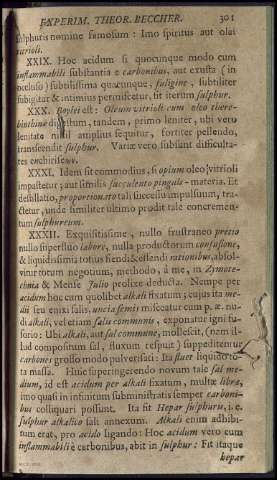 EXPERIM. THEOR. BECCHER. 301
sulphuris nomine famosum: Imo spiritus aut olei
varioli.
XXIX. Hoc acidum si quocunque modo cum
inflammabili substantia e carbonibus, aut exusta (in
occluso) subtilissima quacunque, fuligine, subtiliter
subigitur & intimius permiscetur, fit iterum sulphur.
XXX. est: Oleum vitrioli cum oleo there-
binthinæ tandem, primo leniter, ubi vero
lenitate nihil amplius sequitur, fortiter pellendo,
transcendit sulphur. Variæ vero subsunt difficulta-
tes encheiriseων.
XXXI. Idem sit commodius, si opium oleo vitrioli
impastetur; aut similis succulento pinguis-materia. Et
destillatio, proportionato tali successu impulsum, tra-
ctetur, unde similiter ultimo prodit tale concremen-
tum sulphureum.
XXXII. Exquisitissime, nullo frustraneo pretio
nullo superfluo labore, nulla productorum confusione,
& liquidissima totius fiendi & essendi rationibus, absol-
vitur totum negotium, methodo, à me, in Zymote-
chnia & Mense Julio prolixe deducta. Nempe per
acidum hoc cum quolibet alkali fixatum; cujus ita me-
dii seu enixi salis, uncia semis misceatur cum p. æ. nu-
di alkali, vel etiam salis communis, exponatur igni fu-
sorio: Ubi alkali, aut sal commune, mollescit, (nam il-
lud compositum sal, fluxum respuit) suppeditentur
carbones grosso modo pulverisati: Ita fluet liquido to-
ta massa. Huic superingerendo novum tale sal me-
dium, id est acidum per alkali fixatum, multæ libræ,
imo quasi in infinitum subministratis semper carboni-
bus colliquari possunt. Ita fit Hepar sulphuris, i. e.
sulphur alkalico sali annexum. Alkali enim adhibi-
tum erat, pro acido ligando: Hoc acidum vero cum
inflammabili è carbonibus, abit in sulphur: Fit itaque
hepar